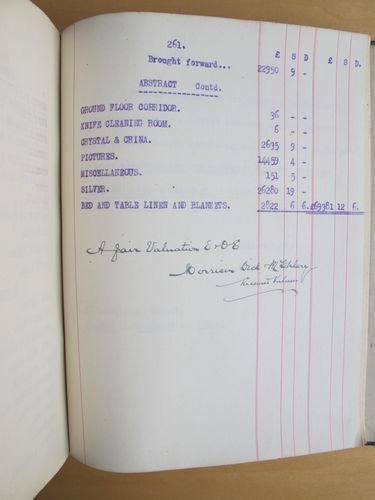 261.
£ S D £ S D.
Brought forward... 22950 9 -
ABSTRACT Contd.
GROUND FLOOR CORRIDOR. 36 - -
KNIFE CLEANING ROOM. 6 - -
CRYSTAL & CHINA. 2635 9 -
PICTURES. 14459 4 -
MISCELLANEOUS. 151 5 -
SILVER. 26280 19 -
BED AND TABLE LINEN AND BLANKETS. 2822 6 6. £69381 12 6.
A fair Valuation E & O E
Morrison Dick &
Licensed Valuers